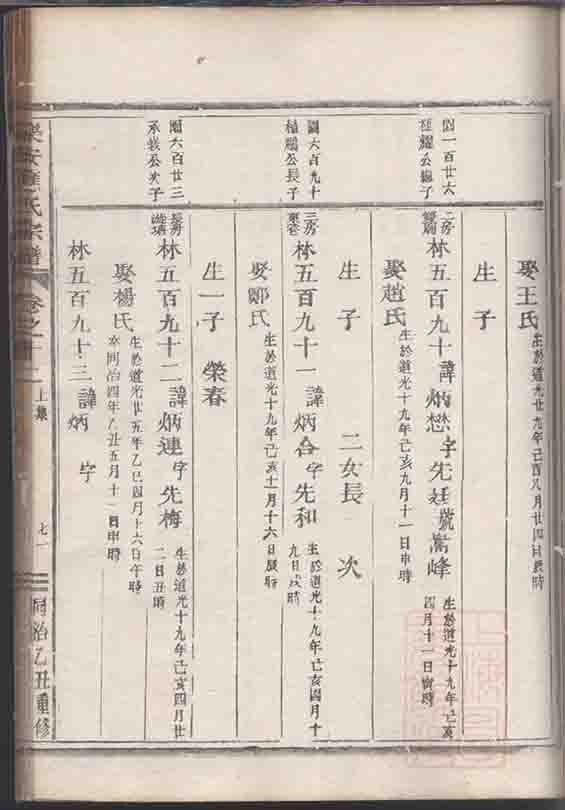 娶王氏 生於道光廿九年己酉八月廿四日辰時
生 子
圓一百廿六
二房 林五百九十 諱炳懋 字先廷 號嵩峰 生於道光十九年己亥
四月十一日寅時
娶趙氏 生於道光十九年己亥九月十一日申時
生 子 二女長 次
圓六百九十
公長子
三房 林五百九十一 諱炳合 字先和 生於道光十九年己亥四月十
九日戌時
娶鄭氏 生於道光十九年己亥 月十六日辰時
生一子 榮春
圓六百廿三
承裁公次子
長房 林五百九十二 諱炳連 字先梅 生於道光十九年己亥四月廿
二日丑時
娶楊氏 生於道光廿五年乙巳四月十六日午時
卒同治四年乙丑五月十一日申時
林五百九十三 諱炳 字
樂安 氏宗譜 卷之十二 上集 七一 同治乙丑重修